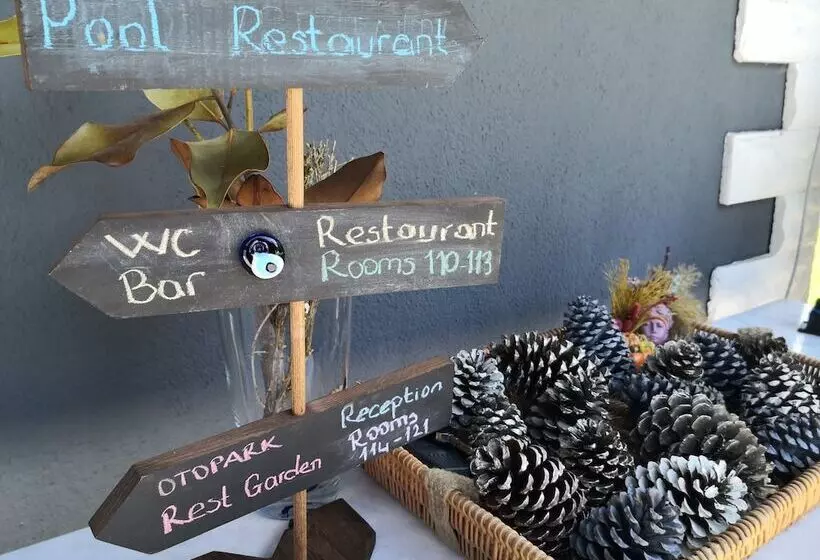 Pool Restaurant
WC
Bar
Restaurant
Rooms 110-113
OTOPARK
Rest Garden
Reception
Rooms
114-121